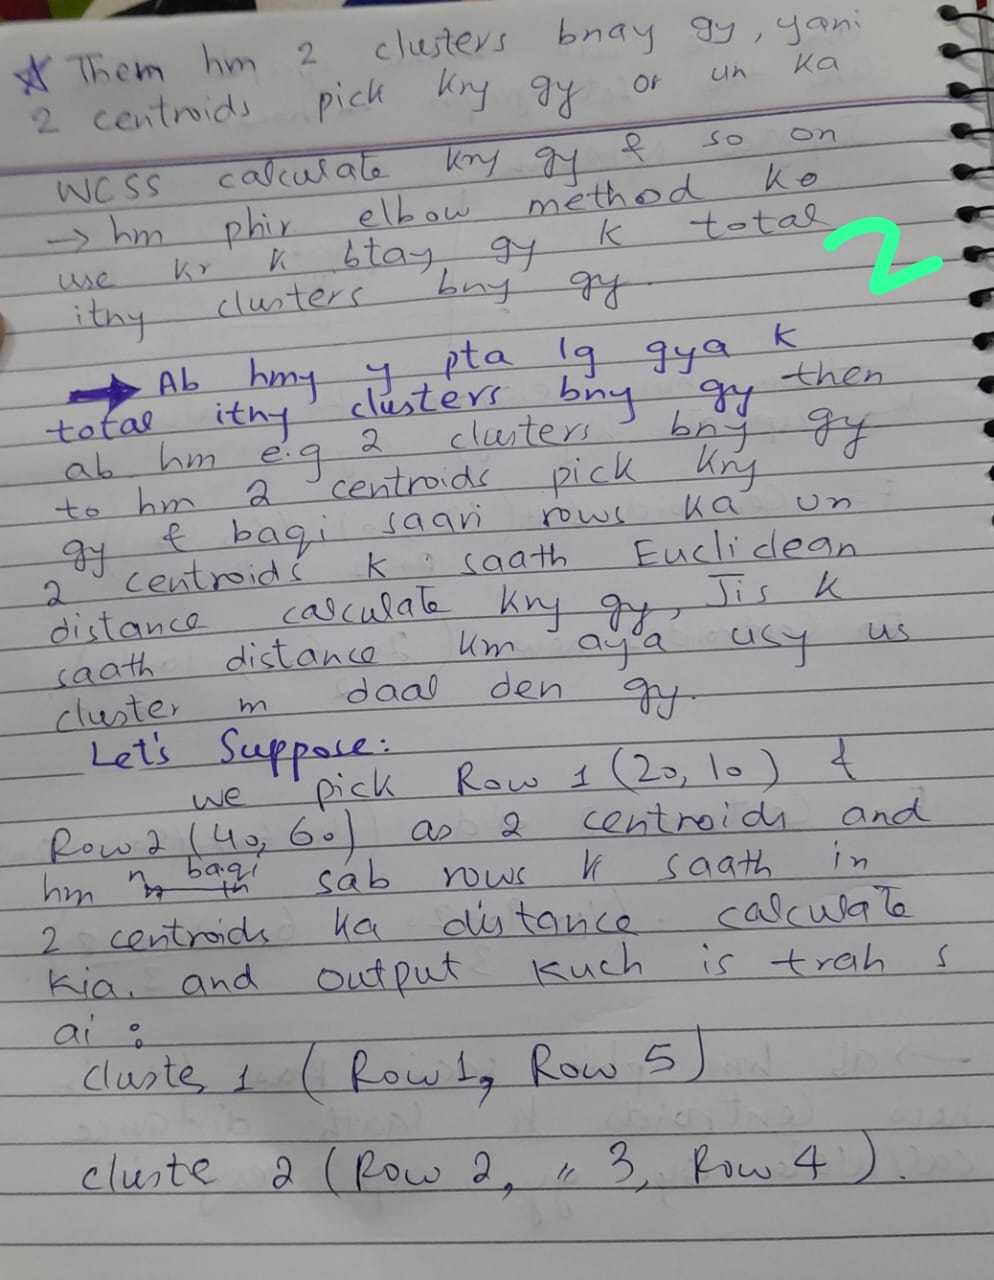 ☆ Them hm 2 clusters bnay gy, yani
2 centroids pick kry gy or un ka
WCSS calculate kry gy & so on
→ hm phir elbow method ko
use kr k btay gy k total
itny clusters bny gy.
2
→ Ab hmy y pta lg gya k
total itny clusters bny gy then
ab hm e.g 2 clusters bny gy
to hm 2 centroids pick kry
gy & baqi saari rows ka un
2 centroids k saath Euclidean
distance calculate kry gy, Jis k
saath distance km aya usy us
cluster m daal den gy.
Let's Suppose:
we pick Row 1 (20, 10) &
Row 2 (40, 60) as 2 centroids and
hm n baqi sab rows k saath in
2 centroids ka distance calculate
kia. and output kuch is trah s
ai :
cluster 1 ( Row 1, Row 5)
cluste 2 (Row 2, " 3, Row 4 ).